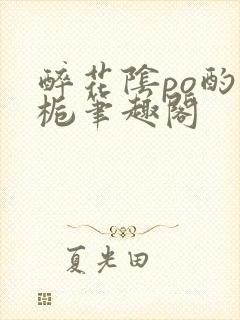 醉花陰po酌
栀筆趣閣
夏光田